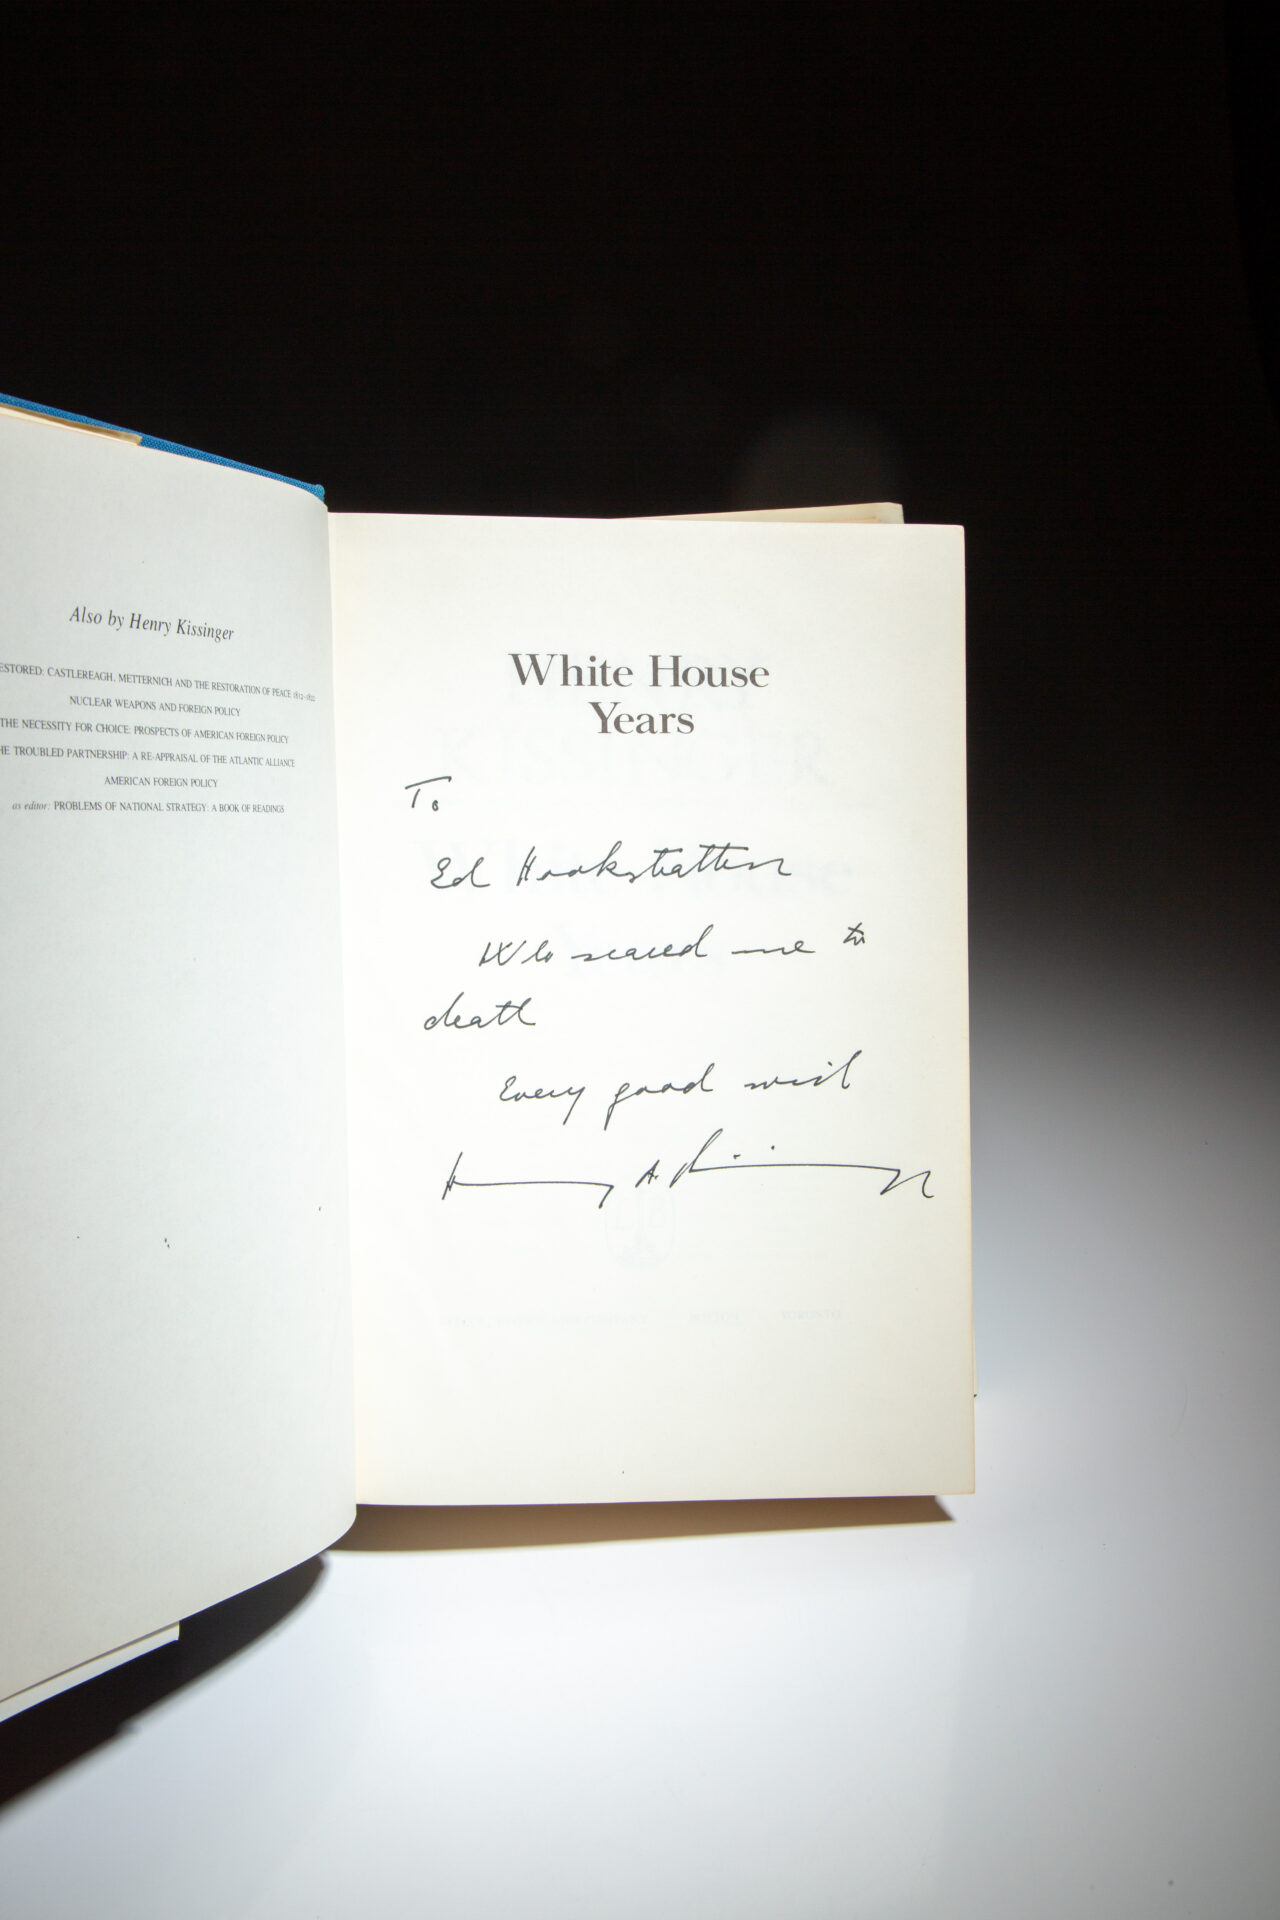 Also by Henry Kissinger
ESTORED: CASTLEREAGH, METTERNICH AND THE RESTORATION OF PEACE 1812-1822
NUCLEAR WEAPONS AND FOREIGN POLICY
THE NECESSITY FOR CHOICE: PROSPECTS OF AMERICAN FOREIGN POLICY
HE TROUBLED PARTNERSHIP: A RE-APPRAISAL OF THE ATLANTIC ALLIANCE
AMERICAN FOREIGN POLICY
as editor: PROBLEMS OF NATIONAL STRATEGY: A BOOK OF READINGS
White House
Years
To
Ed Hookstratten
Who scared me to
death
Every good wish
Henry A. Kissinger